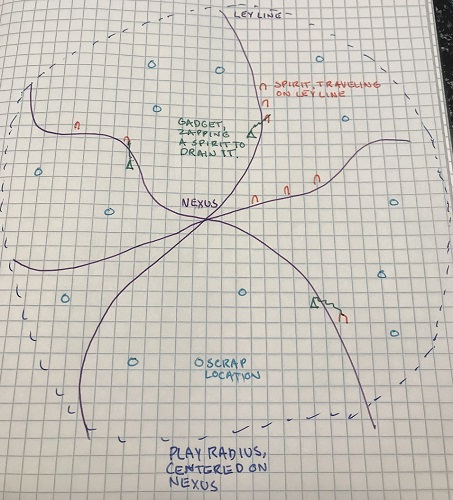 LEY LINE
SPIRIT, TRAVELING
ON LEY LINE
GADGET,
ZAPPING
A SPIRIT TO
DRAIN IT.
NEXUS
SCRAP
LOCATION
PLAY RADIUS,
CENTERED ON
NEXUS